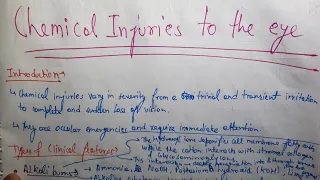 Chemical Injuries to the eye
Introduction →
↳ Chemical injuries vary in severity from a trivial and transient irritation
to complete and sudden loss of vision.
↳ They are ocular emergencies and require immediate attention
Types & Clinical features →
The hydroxyl ions saponify cell membrane fatty acids
while the cation interacts with stromal collagen
& Glycosaminoglycans
This interaction
Alkali burns → Ammonia, NaOH, Potassium hydroxide (KOH), Lime